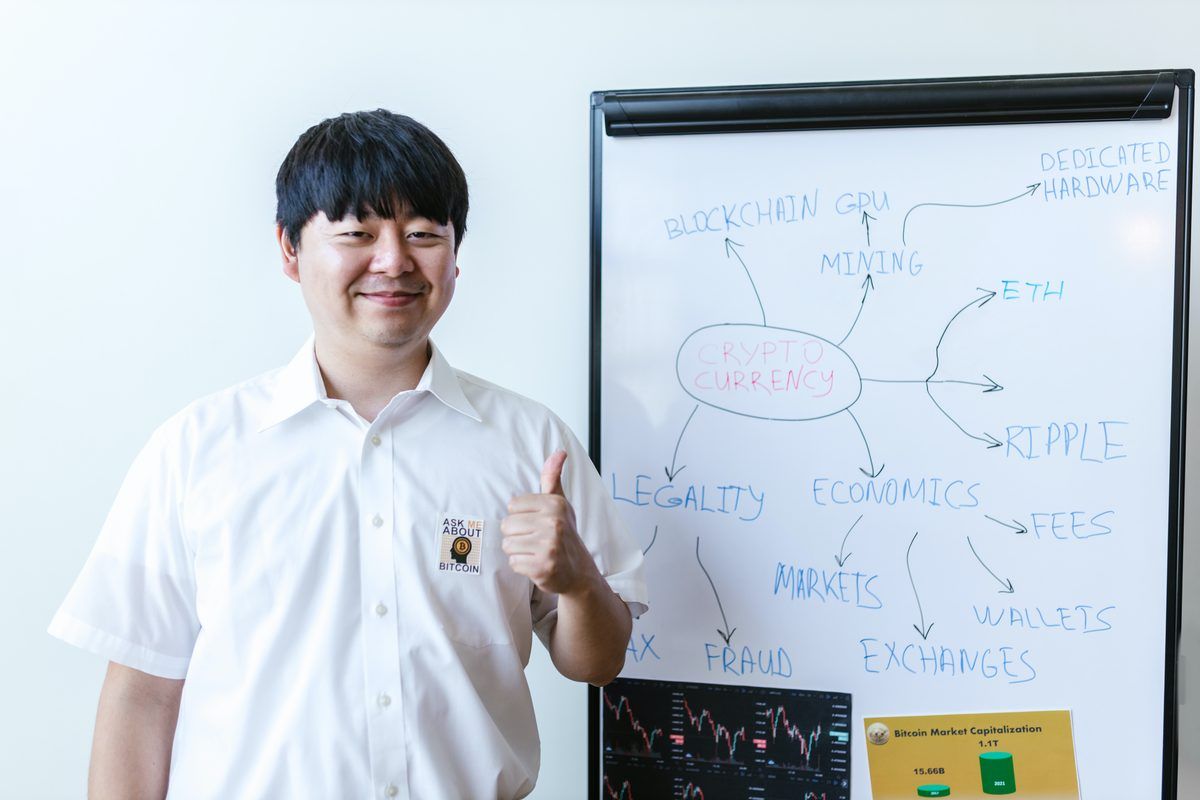 ASK ME
ABOUT
BITCOIN
DEDICATED
HARDWARE
BLOCKCHAIN
GPU
MINING
ETH
CRYPTO
CURRENCY
RIPPLE
LEGALITY
ECONOMICS
FEES
MARKETS
WALLETS
AX
FRAUD
EXCHANGES
Bitcoin Market Capitalization
1.1T
15.66B
2017
2021